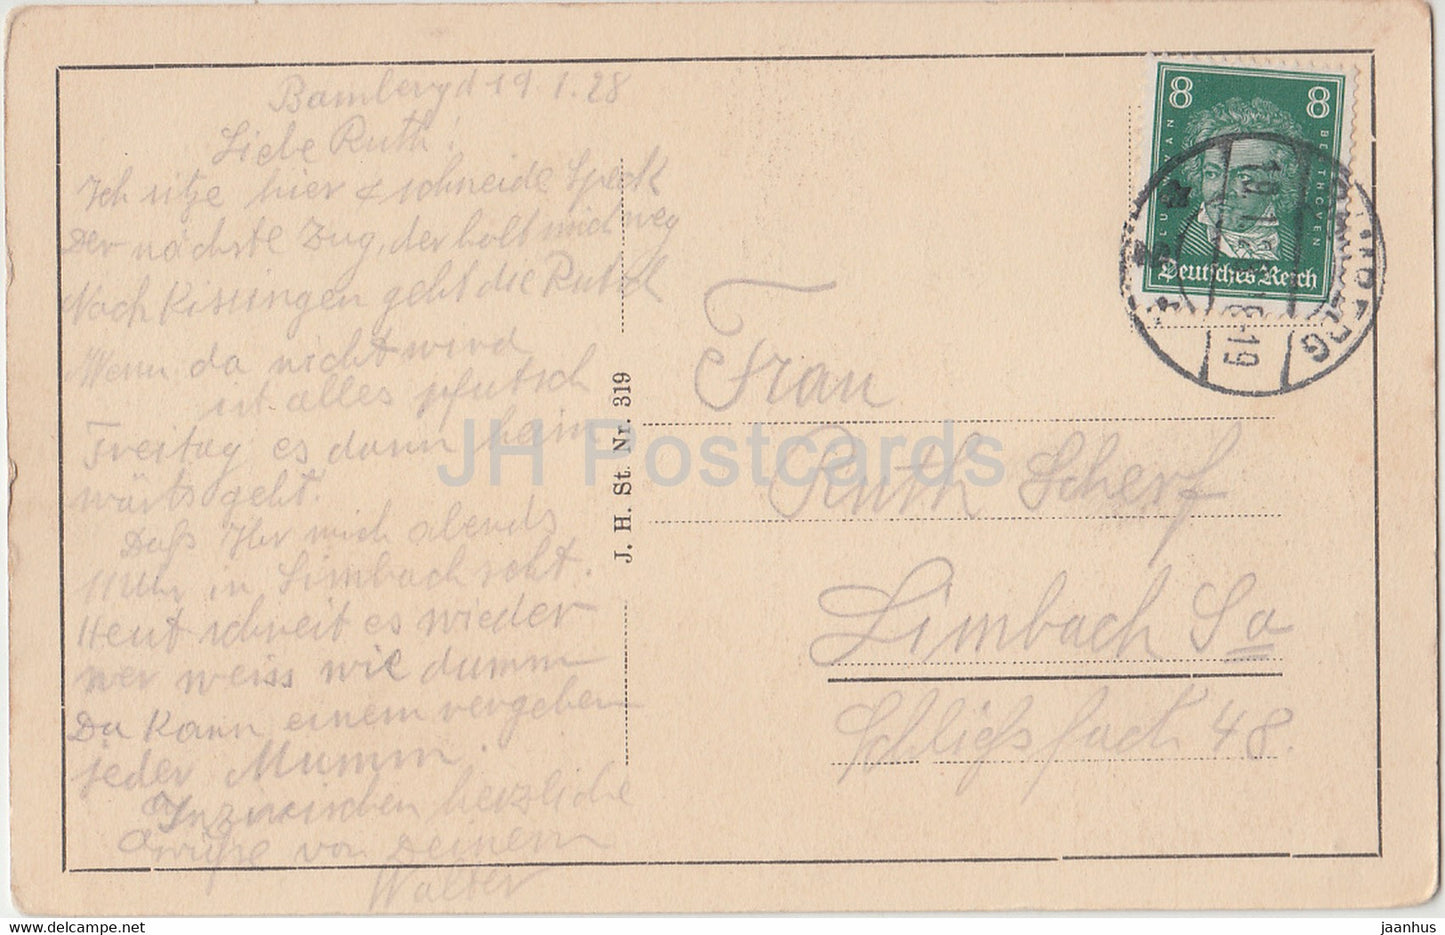 Bamberg d 19.1.28
Liebe Ruth!
Ich sitze hier & schneide Speck
Der nächste Zug, der holt mich weg
Nach Kissingen geht die Rutsch
Wenn da nicht wird
ist alles pfutsch
Freitag es dann heim
wärts geht.
Daß Ihr mich abends
11 Uhr in Limbach seht.
Heut schneit es wieder
wer weiss wie dumm
Da kann einem vergehen
jeder Mumm.
Inzwischen herzliche
Grüße von Deinem
Walter
J. H. St. Nr. 319
8 8
LUDWIG VAN BEETHOVEN
Deutsches Reich
BAMBERG
19.1.28 18-19
Frau
Ruth Scherf
Limbach Sa
Schließfach 48.
JH Postcards
www.delcampe.net
jaanhus